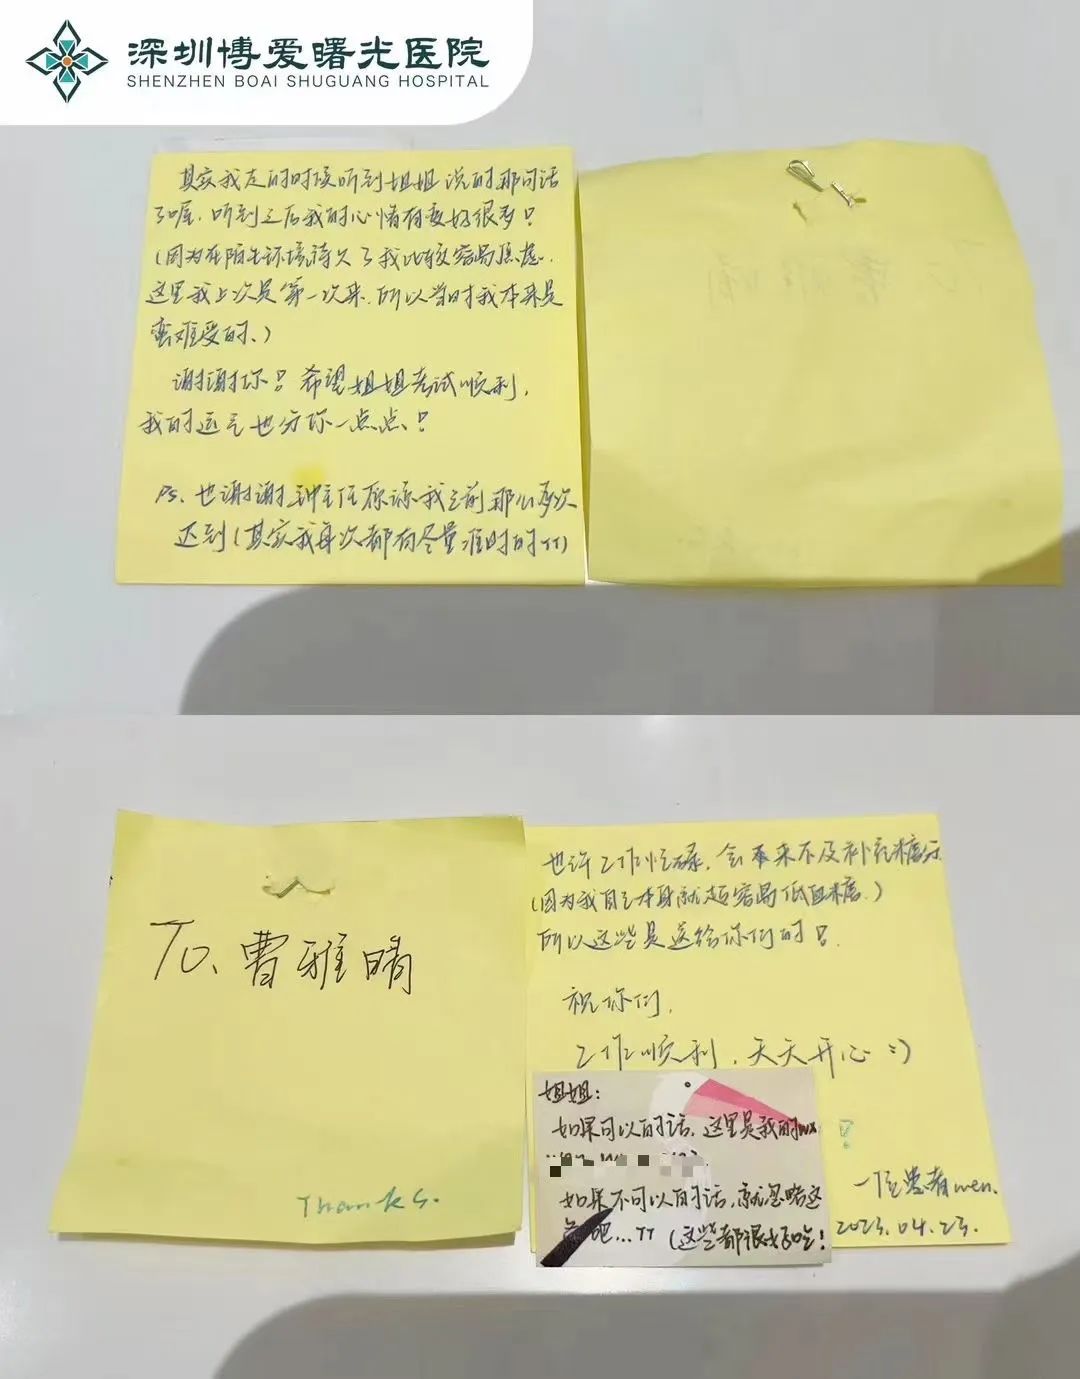 深圳博爱曙光医院
SHENZHEN BOAI SHUGUANG HOSPITAL
其实我走的时候听到姐姐说的那句话
了喔,听到之后我的心情有变好很多!
(因为在陌生环境待久了我比较容易焦虑.
这里我上次是第一次来,所以当时我本来是
蛮难受的、)
谢谢你!希望姐姐考试顺利,
我的运气也分你一点点、!
Ps、也谢谢钟主任原谅我之前那么多次
迟到(其实我每次都有尽量准时的TT)
To、曹雅晴
Thanks.
也许工作忙碌,会本来不及补充糖分
(因为我自己本身就超容易低血糖、)
所以这些是送给你们的!
祝你们,
工作顺利,天天开心 :)
姐姐:
如果可以的话,这里是我的wx
如果不可以的话,就忽略这
吧...TT (这些都很好吃!
一位患者wen.
2023.04.23.